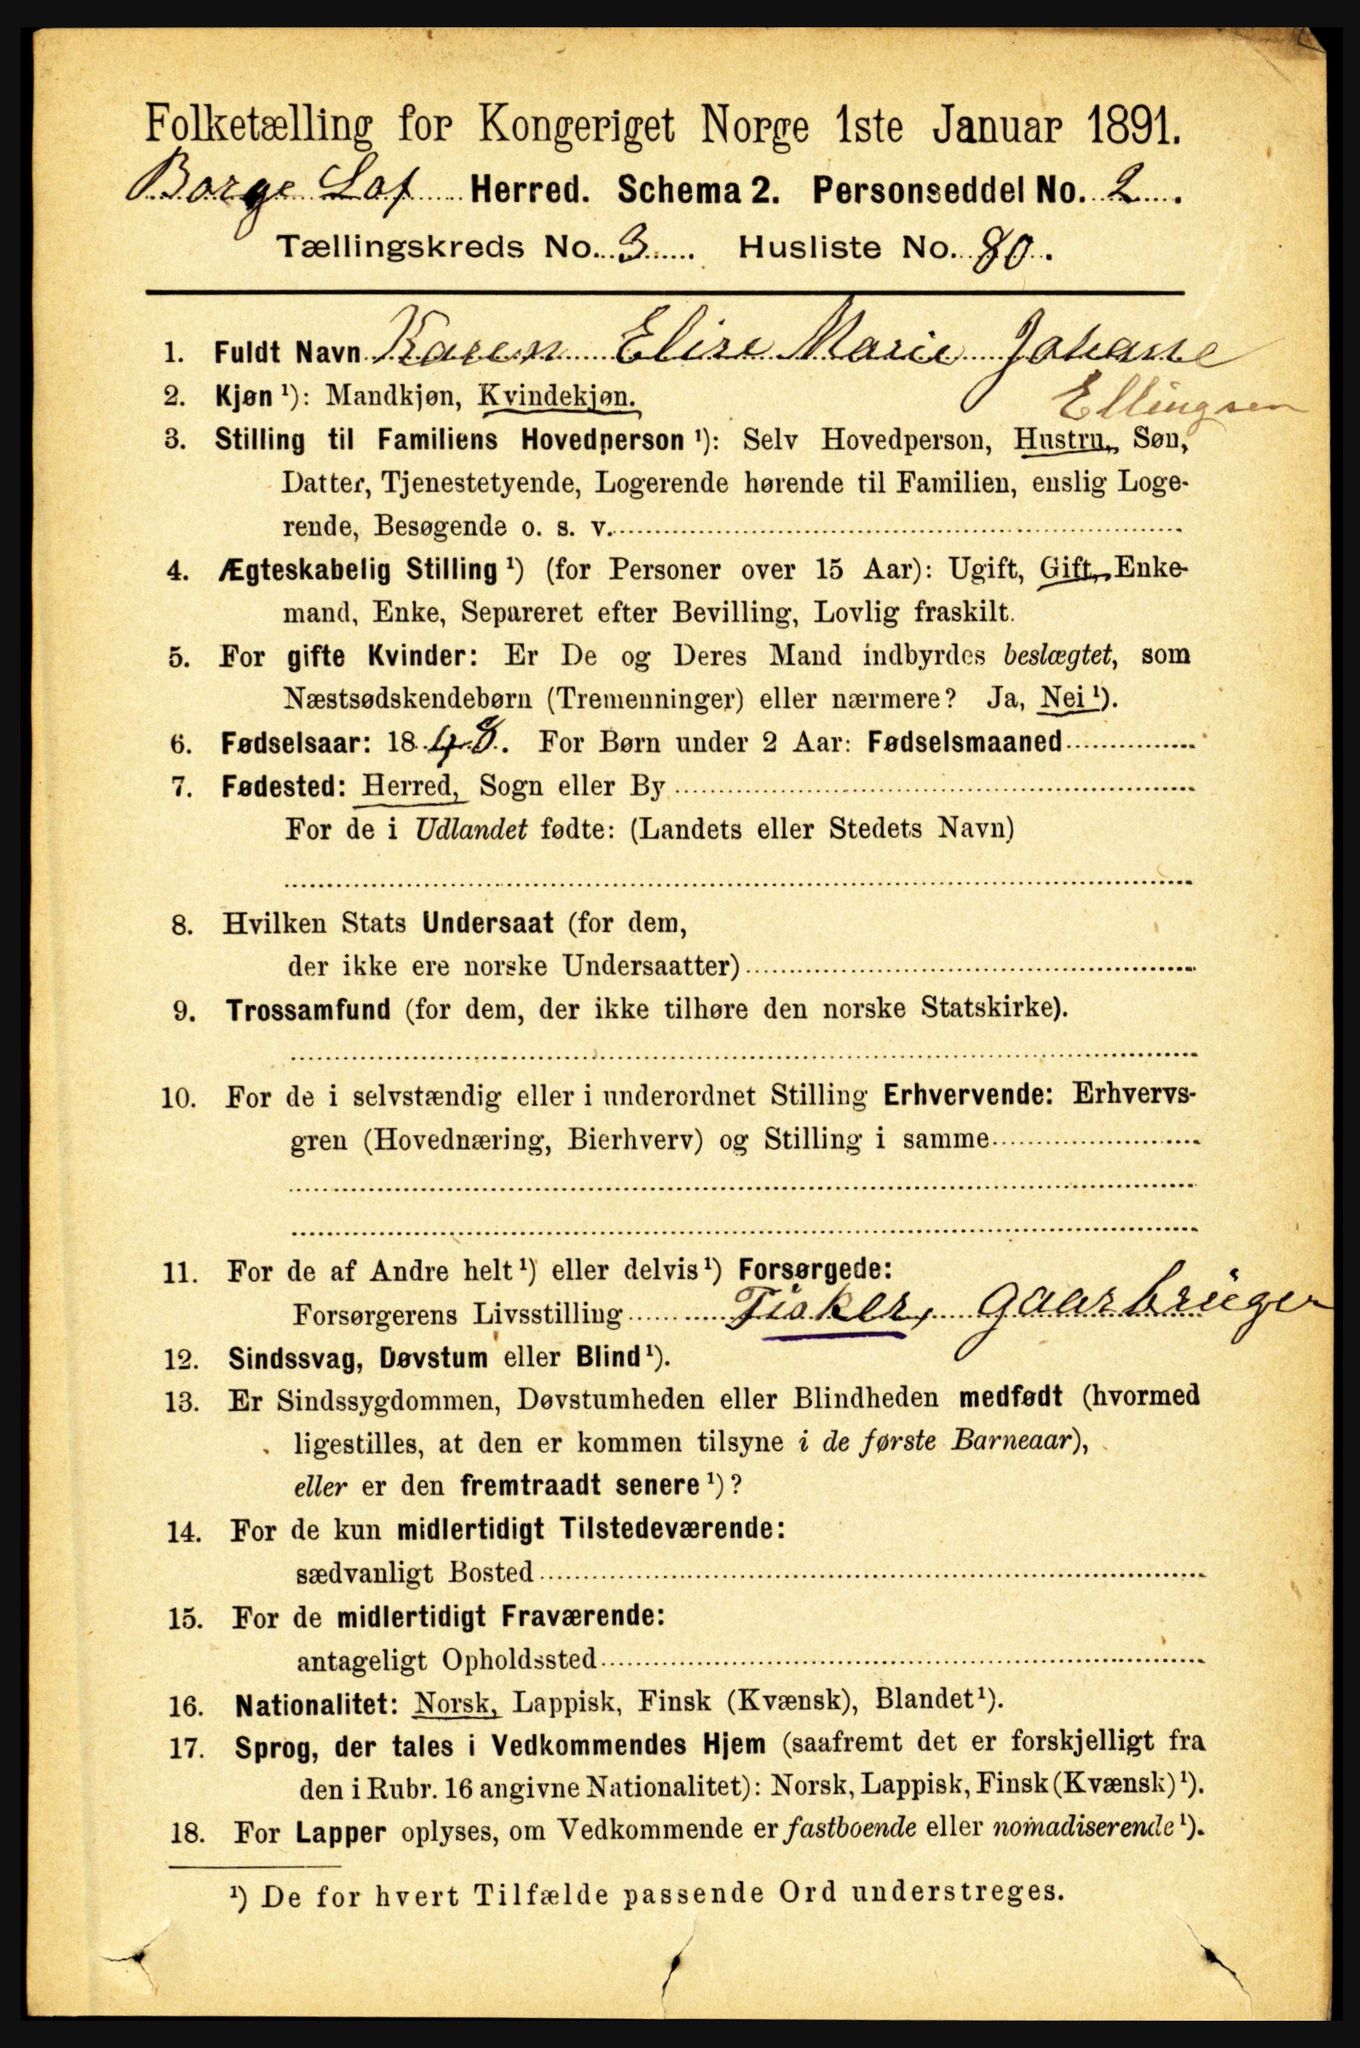 Folketælling for Kongeriget Norge 1ste Januar 1891.
Borge Lof Herred. Schema 2. Personseddel No. 2.
Tællingskreds No. 3. Husliste No. 80.
1. Fuldt Navn Karen Elise Marie Johane
2. Kjøn ¹): Mandkjøn, Kvindekjøn. Ellingsen
3. Stilling til Familiens Hovedperson ¹): Selv Hovedperson, Hustru, Søn,
Datter, Tjenestetyende, Logerende hørende til Familien, enslig Loge-
rende, Besøgende o. s. v.
4. Ægteskabelig Stilling ¹) (for Personer over 15 Aar): Ugift, Gift, Enke-
mand, Enke, Separeret efter Bevilling, Lovlig fraskilt.
5. For gifte Kvinder: Er De og Deres Mand indbyrdes beslægtet, som
Næstsødskendebørn (Tremenninger) eller nærmere? Ja, Nei ¹).
6. Fødselsaar: 1848. For Børn under 2 Aar: Fødselsmaaned
7. Fødested: Herred, Sogn eller By
For de i Udlandet fødte: (Landets eller Stedets Navn)
8. Hvilken Stats Undersaat (for dem,
der ikke ere norske Undersaatter)
9. Trossamfund (for dem, der ikke tilhøre den norske Statskirke).
10. For de i selvstændig eller i underordnet Stilling Erhvervende: Erhvervs-
gren (Hovednæring, Bierhverv) og Stilling i samme
11. For de af Andre helt ¹) eller delvis ¹) Forsørgede:
Forsørgerens Livsstilling Fisker, gaarbruger
12. Sindssvag, Døvstum eller Blind ¹).
13. Er Sindssygdommen, Døvstumheden eller Blindheden medfødt (hvormed
ligestilles, at den er kommen tilsyne i de første Barneaar),
eller er den fremtraadt senere ¹)?
14. For de kun midlertidigt Tilstedeværende:
sædvanligt Bosted
15. For de midlertidigt Fraværende:
antageligt Opholdssted
16. Nationalitet: Norsk, Lappisk, Finsk (Kvænsk), Blandet ¹).
17. Sprog, der tales i Vedkommendes Hjem (saafremt det er forskjelligt fra
den i Rubr. 16 angivne Nationalitet): Norsk, Lappisk, Finsk (Kvænsk) ¹).
18. For Lapper oplyses, om Vedkommende er fastboende eller nomadiserende ¹).
¹) De for hvert Tilfælde passende Ord understreges.